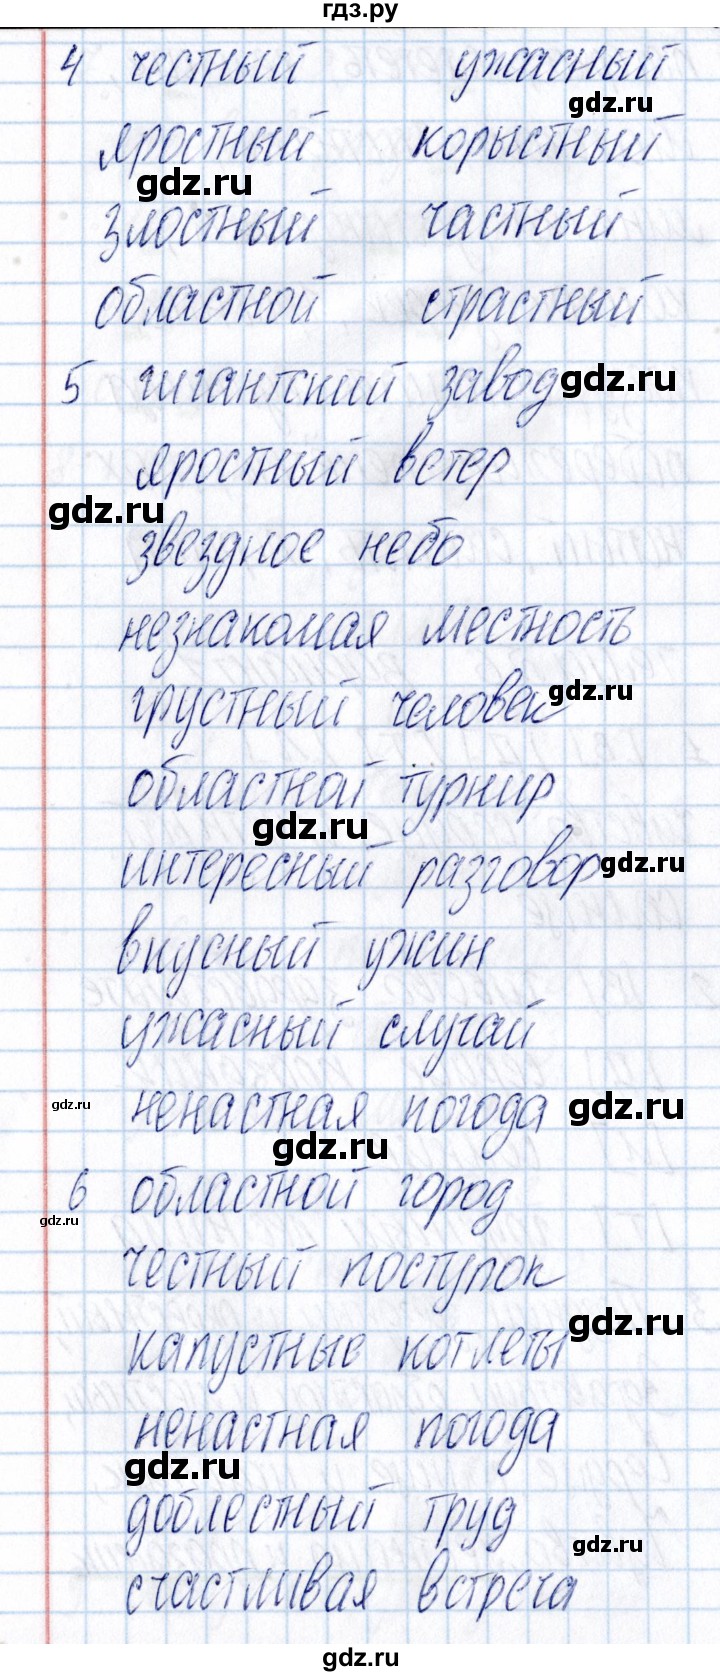 гдз.ру
4 честный ужасный
gdz.ru
яростный корыстный
gdz.ru
злостный частный
областной страстный
5 гигантский завод
gdz.ru
яростный ветер
gdz.ru
звездное небо
незнакомая местность
gdz.ru
грустный человек
областной турнир
gdz.ru
интересный разговор
gdz.ru
вкусный ужин
ужасный случай
gdz.ru
ненастная погода
gdz.ru
gdz.ru
6 областной город
gdz.ru
честный поступок
gdz.ru
капустные котлеты
ненастная погода
gdz.ru
доблестный труд
gdz.ru
счастливая встреча
gdz.ru